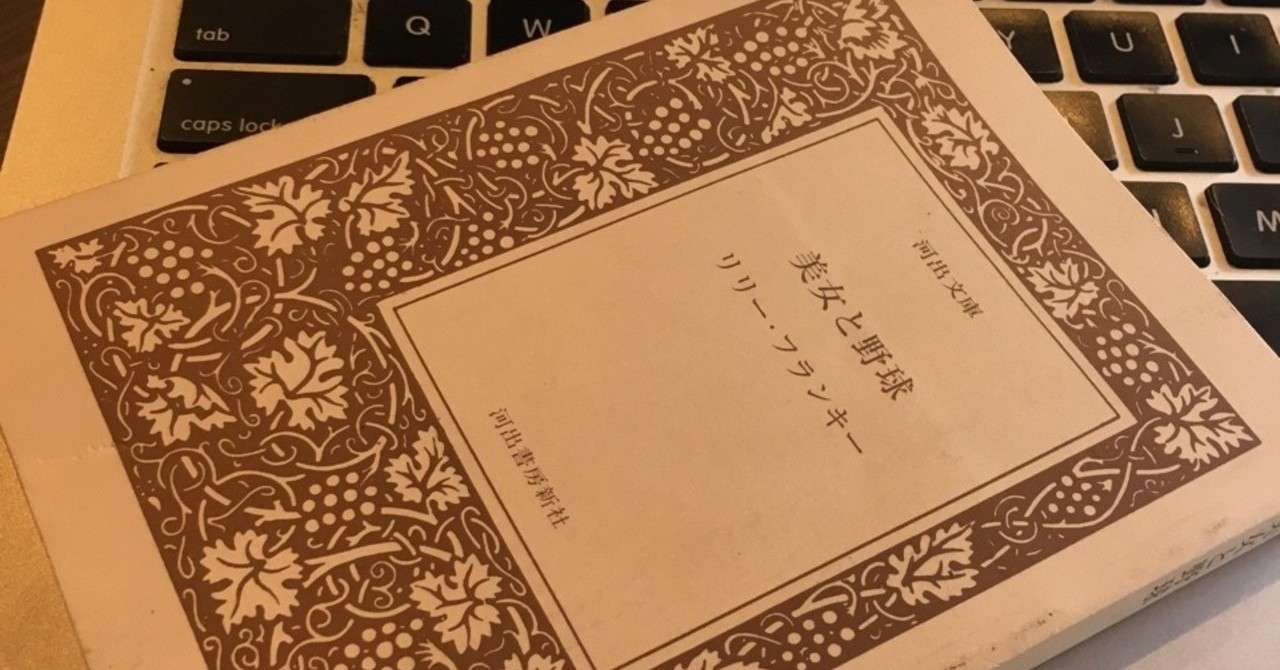 tab
Q
W
Y
U
I
caps lock
J
M
河出文庫
美女と野球
リリー・フランキー
河出書房新社